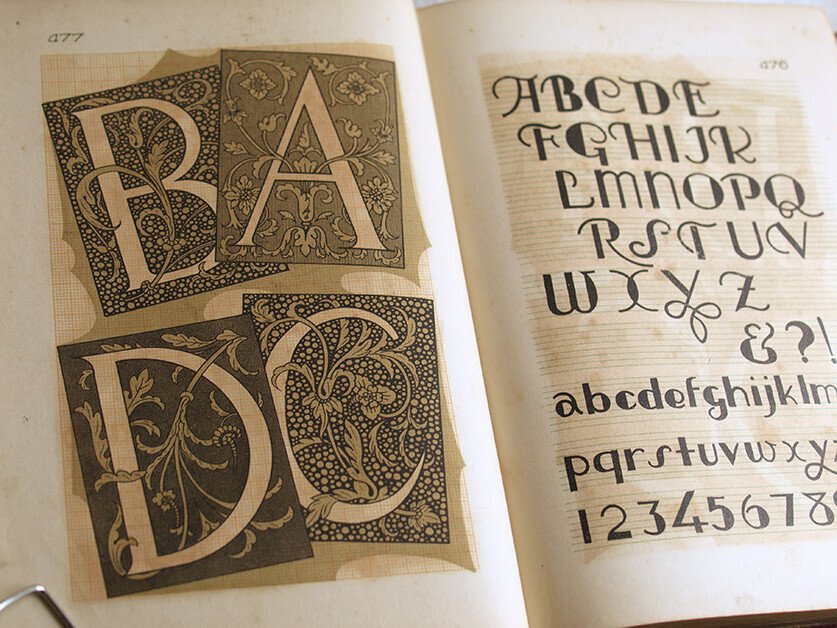 a77
B A
D C
a76
ABCDE
FGHIJK
LMNOPQ
RSTUV
WXYZ
&?!
abcdefghijklm
pqrstuvwxyz
12345678